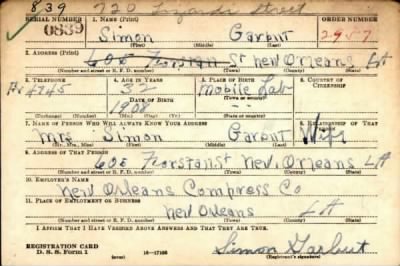 839 720 Street
SERIAL NUMBER 1. NAME (Print) ORDER NUMBER
0839 Simon Garbut 2957
(First) (Middle) (Last)
2. ADDRESS (Print)
605 St New Orleans LA
(Number and street or R. F. D. number) (Town) (County) (State)
3. TELEPHONE 4. AGE IN YEARS 5. PLACE OF BIRTH 6. COUNTRY OF CITIZENSHIP
4745 32 Mobile
DATE OF BIRTH
(Exchange) (Number) (Mo.) (Day) (Yr.) (Town or county) (State or country)
7. NAME OF PERSON WHO WILL ALWAYS KNOW YOUR ADDRESS 8. RELATIONSHIP OF THAT PERSON
Mrs Simon Garbut Wife
(Mr., Mrs., Miss) (First) (Middle) (Last)
9. ADDRESS OF THAT PERSON
605 New Orleans LA
(Number and street or R. F. D. number) (Town) (County) (State)
10. EMPLOYER'S NAME
New Orleans Compress Co
11. PLACE OF EMPLOYMENT OR BUSINESS
New Orleans LA
(Number and street or R. F. D. number) (Town) (County) (State)
I AFFIRM THAT I HAVE VERIFIED ABOVE ANSWERS AND THAT THEY ARE TRUE.
REGISTRATION CARD
D. S. S. Form 1 16-17105 Simon Garbut
(Registrant's signature)